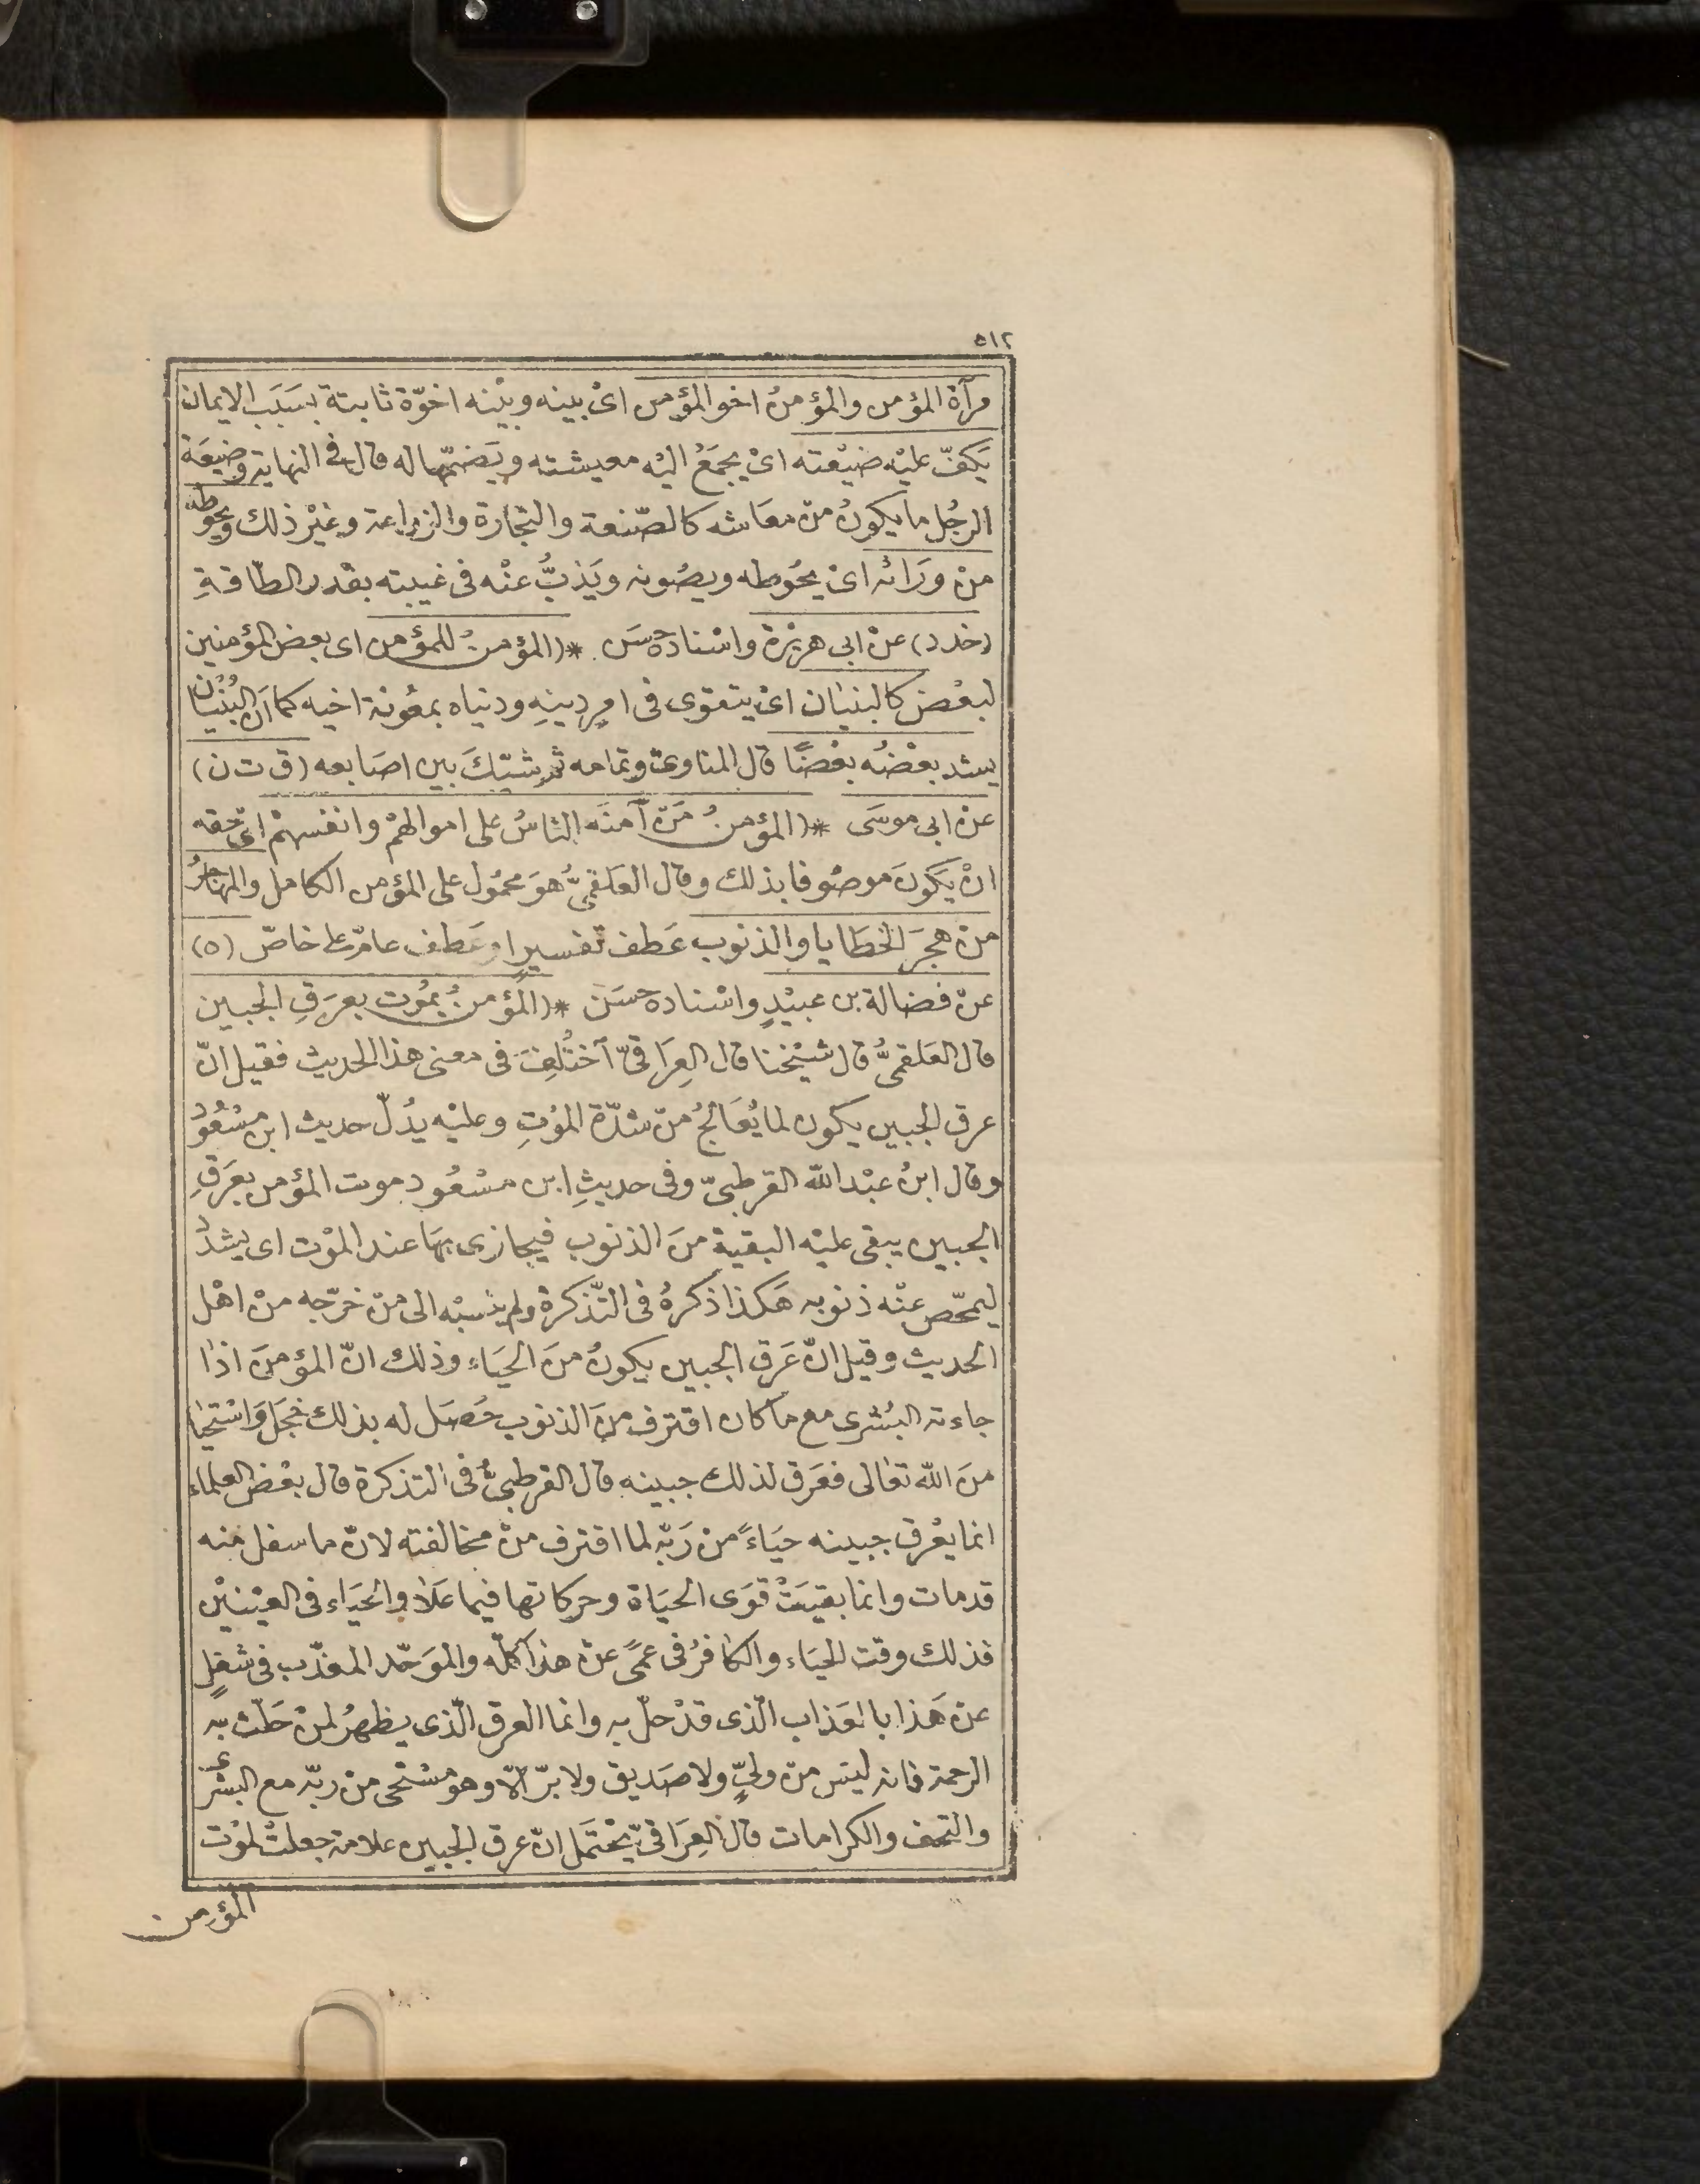 ٥١٢
مرآة المؤمن والمؤمنُ اخو المؤمن اىْ بينه وبيْنه اخوّة ثابتة بسَبَب الايمان
يَكفّ عليْه ضيْعته اىْ يجمَعُ اليْه معيشته ويَضمّها له قال فى النهاية وضيعَة
الرجُل ما يكونُ منْ معَاشه كالصّنعة والتجارة والزراعة وغيْر ذلك ويحوطه
منْ ورَائه اىْ يحُوطه ويصُونه ويَذبُّ عنْه فى غيبته بقدر الطّاقةِ
(خد د) عنْ ابى هريْرة واسْناده حسَن *(المؤمنُ للمؤمن اى بعض المؤمنين
لبعْض كالبنيان اىْ يتقوى فى امرِ دينِهِ ودنياه بمعُونة اخيه كما انّ البُنْيَان
يشد بعْضُه بعْضًا قال المناوىّ وتمامه ثم شبّكَ بين اصَابعه (ق ت ن)
عنْ ابى موسَى *(المؤمنُ مَنْ آمنَه الناسُ على اموالهمْ وانفسهمْ اىْ حقه
انْ يَكونَ موصُوفا بذلك وقال العَلقمىُّ هوَ محمُول على المؤمن الكامل والمهاجرُ
منْ هجَرَ الخطَايا والذنوب عَطف تفسيرٍ او عَطف عامّ على خاصّ (ه)
عنْ فضالة بن عبيْدٍ واسْناده حسَنٌ *(المؤمنُ يمُوت بعرَقِ الجبين
قال العَلقمىُّ قال شيْخنا قال العِرَاقىّ اَختُلِفَ فى معنى هذا الحديث فقيل انّ
عرق الجبين يكون لما يُعَالجُ منْ شدّة الموْتِ وعليْه يدُلّ حديث ابن مسْعُودٍ
وقال ابنُ عبْد الله القرطبىّ وفى حديثِ ابن مسْعُود موت المؤمن بعَرَقِ
الجبين يبقى عليْه البقية منَ الذنوب فيجازى بهَا عند الموْت اى يشدّدُ
ليمحّص عنْه ذنوبه هَكذا ذكرهُ فى التّذكرة ولم ينسبْه الى منْ خرّجه منْ اهْل
الحديث وقيل انّ عَرق الجبين يكونُ منَ الحيَاء وذلك انّ المؤمنَ اذا
جاءته البُشْرى مع ما كان اقترف منَ الذنوب حَصَل له بذلك خجَل وَاسْتحيا
منَ الله تعَالى ففرَق لذلك جبينه قال القرطبىُّ فى التذكرة قال بعْض العلماء
انما يعْرق جبينه حيَاءً منْ رَبّه لما اقترف منْ مخالفته لانّ ما سفل منه
قد مات وانما بقيَتْ قوَى الحيَاة وحركاتها فيما عَلا والحيَاء فى العيْنيْن
فذلك وقت الحيَاء والكافرُ فى عمًى عنْ هذا كلّه والموَحّد المعذّب فى شغلٍ
عنْ هَذا بالعَذاب الّذى قدْ حلّ به وانما العرق الّذى يظهرُ لمنْ حَلّتْ به
الرحمة فانه ليْس منْ ولىٍّ ولا صَديق ولا برّ الاّ وهو مسْتحى من ربّه مع البشرى
والتحف والكرامات قال العِرَاقىّ يحْتمَل انّ عرق الجبين علامة جعلتْ لموْت
المؤمن